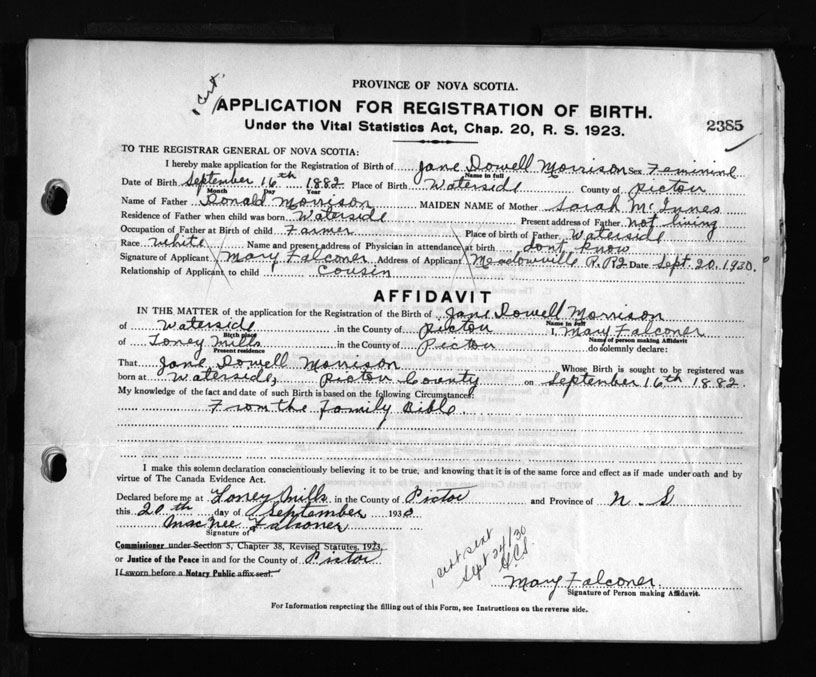 PROVINCE OF NOVA SCOTIA.
1 Cert.
APPLICATION FOR REGISTRATION OF BIRTH.
Under the Vital Statistics Act, Chap. 20, R. S. 1923.
2385
TO THE REGISTRAR GENERAL OF NOVA SCOTIA:
I hereby make application for the Registration of Birth of Jane Dowell Morrison Sex Feminine
Name in full
Date of Birth September 16th 1882 Place of Birth Waterside County of Pictou
Month Day Year
Name of Father Ronald Morrison MAIDEN NAME of Mother Sarah McInnes
Residence of Father when child was born Waterside Present address of Father not living
Occupation of Father at Birth of child Farmer Place of birth of Father Waterside
Race white Name and present address of Physician in attendance at birth dont know
Signature of Applicant Mary Falconer Address of Applicant Meadowville P. R2 Date Sept. 20. 1930.
Relationship of Applicant to child Cousin
AFFIDAVIT
IN THE MATTER of the application for the Registration of the Birth of Jane Dowell Morrison
Name in full
of Waterside in the County of Pictou I, Mary Falconer
Birth place Name of person making Affidavit
of Toney Mills in the County of Pictou do solemnly declare:
Present residence
That Jane Dowell Morrison Whose Birth is sought to be registered was
born at Waterside, Pictou County on September 16th 1882.
My knowledge of the fact and date of such Birth is based on the following Circumstances:
From the Family Bible
I make this solemn declaration conscientiously believing it to be true, and knowing that it is of the same force and effect as if made under oath and by
virtue of The Canada Evidence Act.
Declared before me at Toney Mills in the County of Pictou and Province of N. S
this 20th day of September 1930
MacNee Falconer
Signature of
Commissioner under Section 5, Chapter 38, Revised Statutes, 1923,
or Justice of the Peace in and for the County of Pictou
If sworn before a Notary Public affix seal.
1 cert sent
Sept 24/30
Mary Falconer
Signature of Person making Affidavit.
For Information respecting the filling out of this Form, see Instructions on the reverse side.